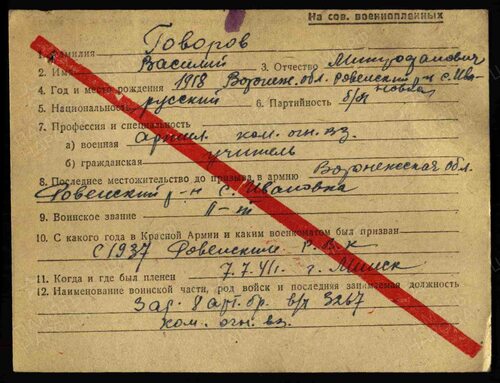 На сов. военнопленных
1. Фамилия Говоров
2. Имя Василий 3. Отчество Митрофанович
4. Год и место рождения 1918 Воронеж. обл. Ровенский р-н с. Ива
5. Национальность русский 6. Партийность б/п новка
7. Профессия и специальность
а) военная Артил. ком. огн. вз.
б) гражданская учитель
8. Последнее местожительство до призыва в армию Воронежская обл.
Ровенский р-н с. Ивановка
9. Воинское звание
10. С какого года в Красной Армии и каким военкоматом был призван
С 1937 Ровенским Р.В.К
11. Когда и где был пленен 7.7.41г. г. Минск
12. Наименование воинской части, род войск и последняя занимаемая должность
8 арт. бр. в/ч 3267
ком. огн. вз.